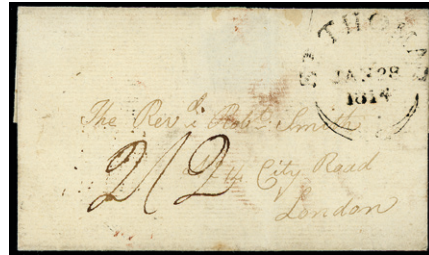 ST THOMAS
JAN 28
1814
The Revd Robt Smith
2/2
City Road
London